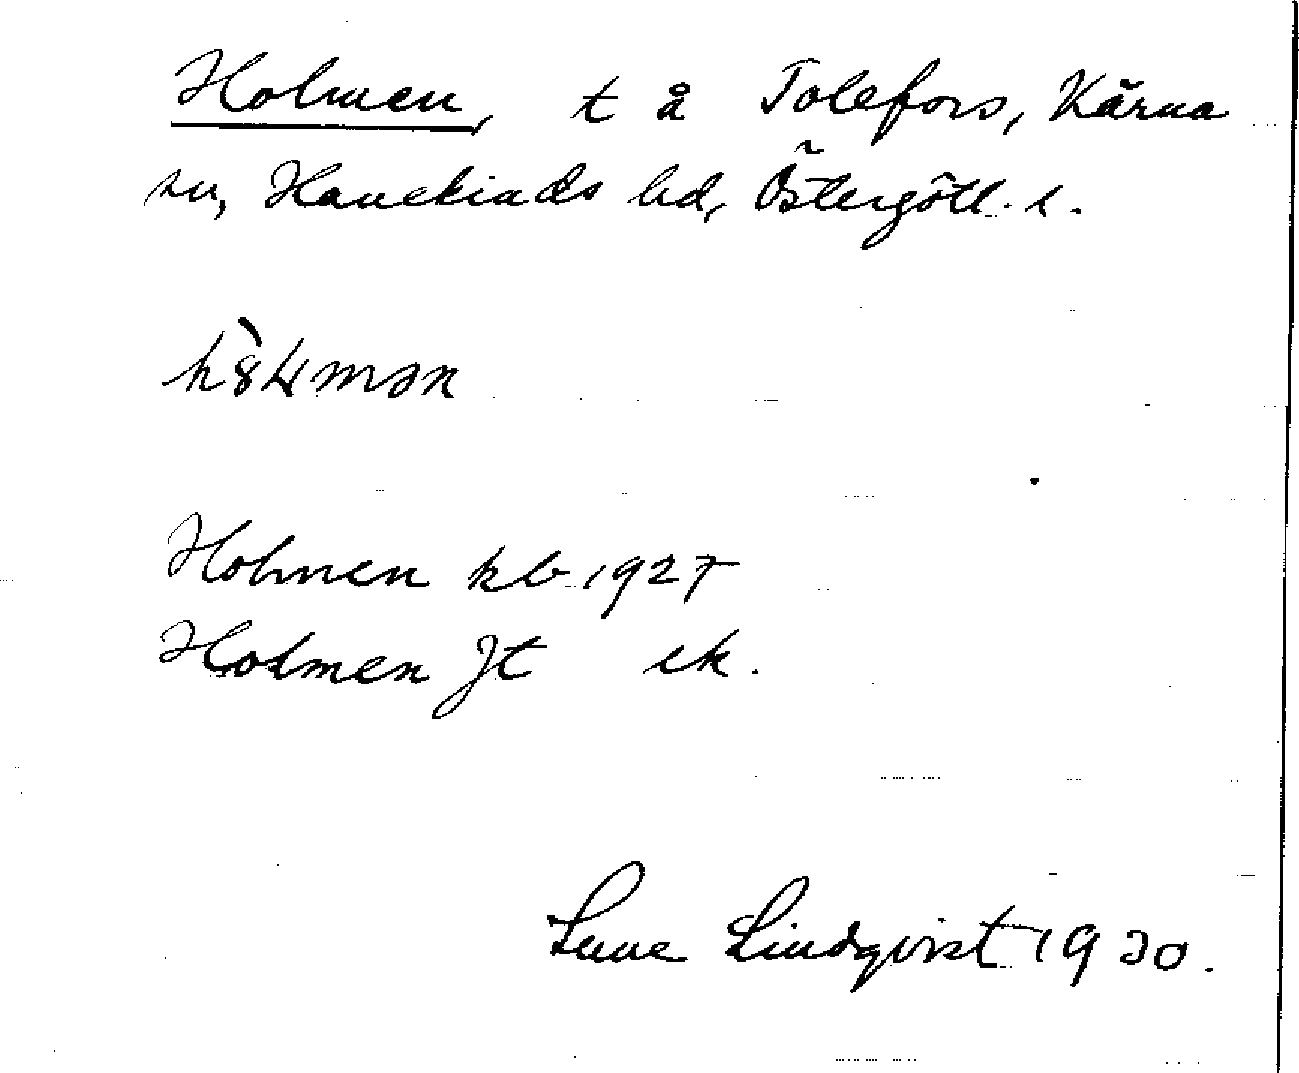 Holmen, t å Tolefors, Kärna
sn, Hanekinds hd, Östergötl. l.
Holmen kb 1927
Holmen Jt ek.
Sune Lindqvist 1930.